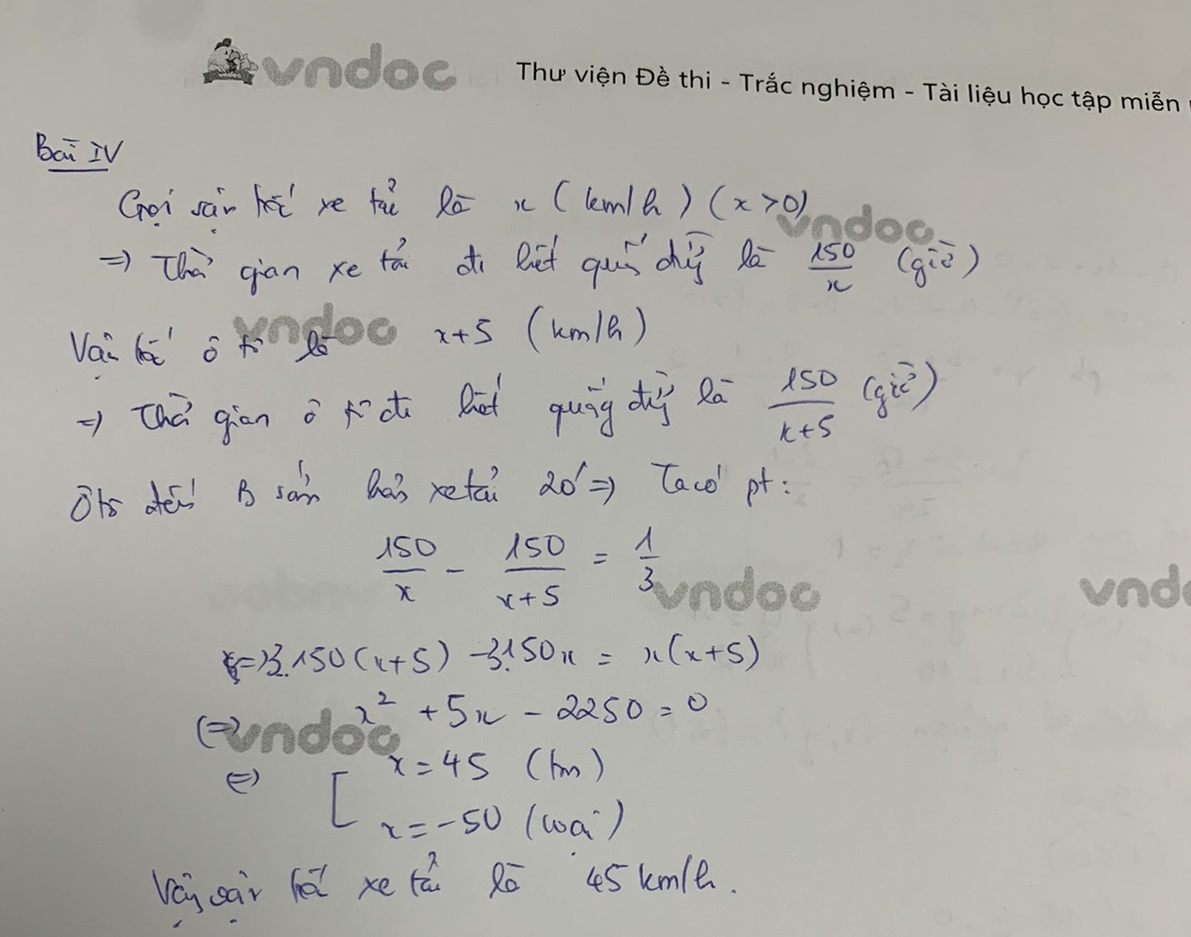 vndoc Thư viện Đề thi - Trắc nghiệm - Tài liệu học tập miễn
Bài IV
Gọi vận tốc xe tải là x (km/h) (x>0)
vndoc
=> Thời gian xe tải đi hết quãng đường là 150/x (giờ)
vndoc
Vận tốc ô tô là x+5 (km/h)
=> Thời gian ô tô đi hết quãng đường là 150/x+5 (giờ)
Ô tô đến B sớm hơn xe tải 20' => Ta có pt:
150/x - 150/x+5 = 1/3
vndoc vnd
<=> 3.150(x+5) - 3.150x = x(x+5)
<=> x² + 5x - 2250 = 0
vndoc
<=> [ x = 45 (tm)
x = -50 (loại)
Vậy vận tốc xe tải là 45 km/h.